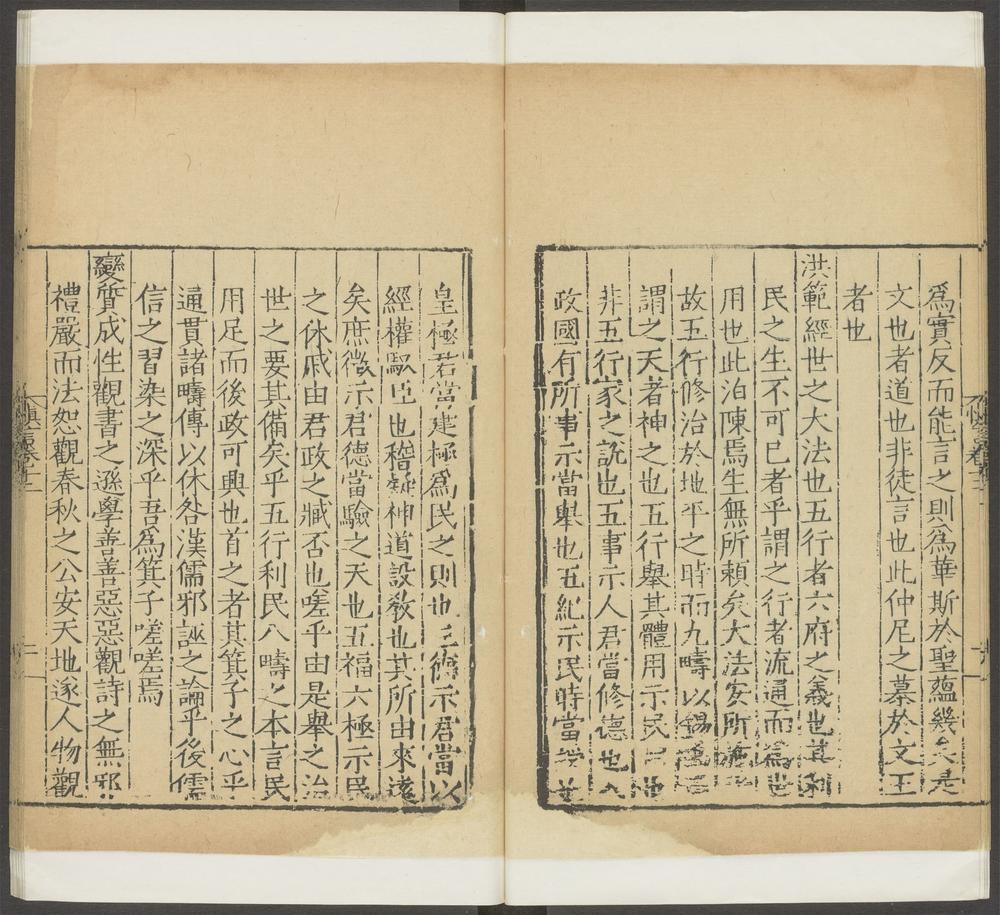 爲實反而能言之則爲華斯於聖蘊幾矣是
文也者道也非徒言也此仲尼之慕於文王
者也
洪範經世之大法也五行者六府之義也其利
民之生不可已者乎謂之行者流通而爲世
用也此泊陳焉生無所賴矣大法安所
故五行修治於地平之時而九疇以錫
謂之天者神之也五行舉其體用示民
非五行家之說也五事示人君當修德也八
政國有所事示當舉也五紀示民時當
皇極君當建極爲民之則也三德示君當以
經權馭臣也稽疑神道設教也其所由來遠
矣庶徵示君德當驗之天也五福六極示民
之休戚由君政之臧否也嗟乎由是舉之治
世之要其備矣乎五行利民八疇之本言民
用足而後政可興也首之者其箕子之心乎
通貫諸疇傳以休咎漢儒邪誣之論乎後儒
信之習染之深乎吾爲箕子嗟嗟焉
變質成性觀書之遜學善善惡惡觀詩之無邪
禮嚴而法恕觀春秋之公安天地遂人物觀